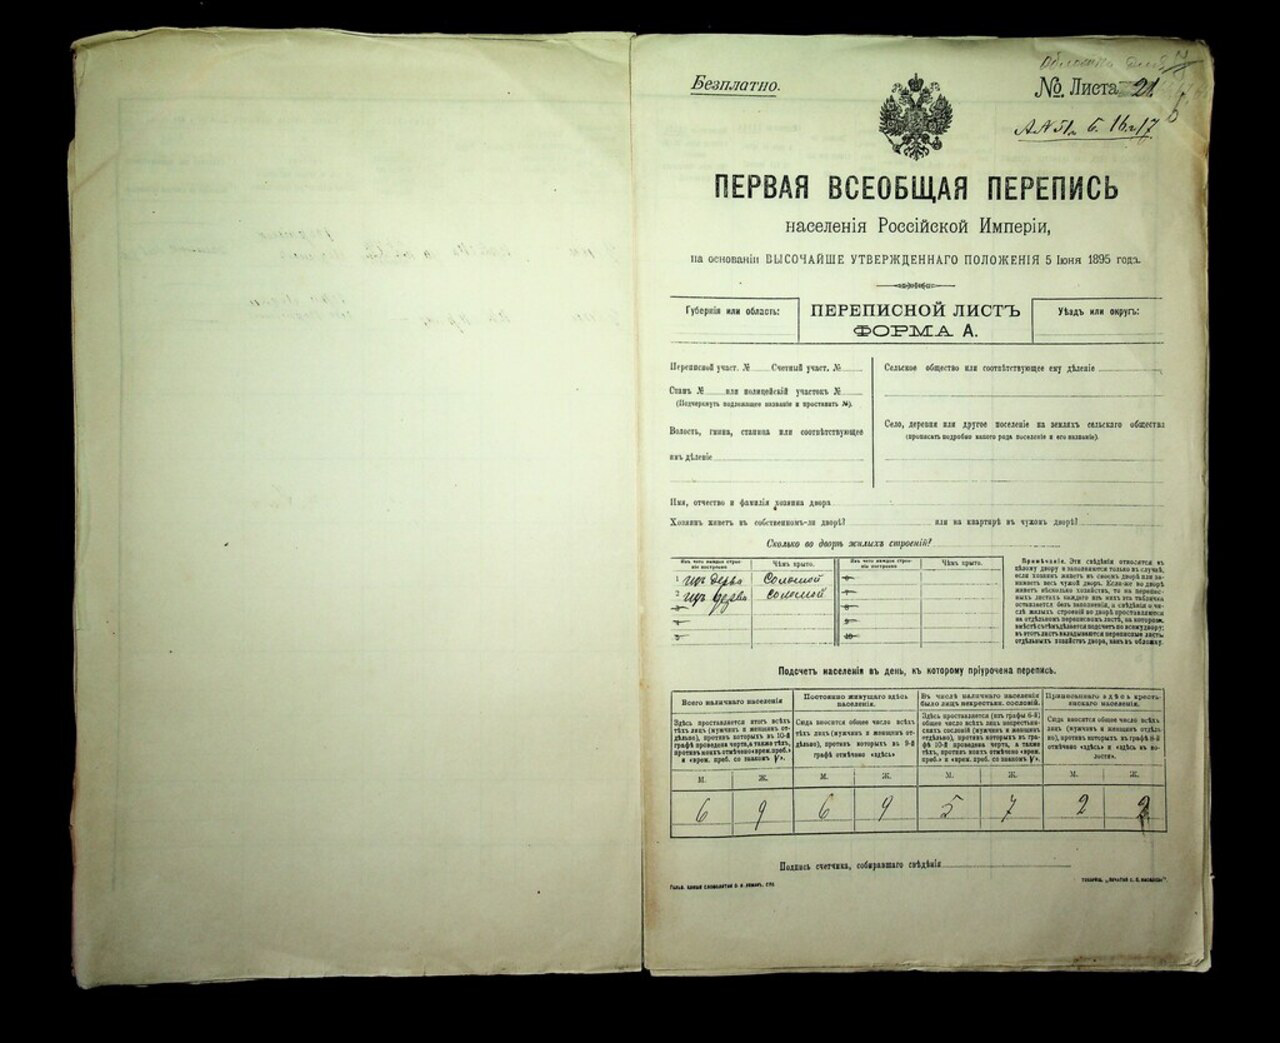 Безплатно.
№ Листа 21.
ПЕРВАЯ ВСЕОБЩАЯ ПЕРЕПИСЬ
населенія Россійской Имперіи,
на основаніи ВЫСОЧАЙШЕ УТВЕРЖДЕННАГО ПОЛОЖЕНІЯ 5 Іюня 1895 года.
Губернія или область:
ПЕРЕПИСНОЙ ЛИСТЪ
ФОРМА А.
Уѣздъ или округъ:
Переписной участ. № Счетный участ. №
Станъ № или полицейскій участокъ №
(Подчеркнуть подлежащее названіе и проставить №).
Волость, гмина, станица или соотвѣтствующее
имъ дѣленіе
Сельское общество или соотвѣтствующее ему дѣленіе
Село, деревня или другое поселеніе на земляхъ сельскаго общества
(прописать подробно какого рода поселеніе и его названіе).
Имя, отчество и фамилія хозяина двора
Хозяинъ живетъ въ собственномъ-ли дворѣ? или на квартирѣ въ чужомъ дворѣ?
Сколько во дворѣ жилыхъ строеній?
Изъ чего каждое строеніе построено.
Чѣмъ крыто.
Изъ чего каждое строеніе построено.
Чѣмъ крыто.
1 изъ дерева Соломой
2 изъ дерева соломой
Примѣчаніе. Эти свѣдѣнія относятся къ
цѣлому двору и заполняются только въ случаѣ,
если хозяинъ живетъ въ своемъ дворѣ или занимаетъ
весь чужой дворъ. Если-же во дворѣ
живетъ нѣсколько хозяйствъ, то на переписныхъ
листахъ каждаго изъ нихъ эта табличка
остается безъ заполненія, а свѣдѣнія о числѣ
жилыхъ строеній во дворѣ проставляются
на отдѣльномъ переписномъ листѣ, на которомъ
вмѣстѣ съ тѣмъ дѣлается подсчетъ по всему двору;
въ этотъ листъ вкладываются переписные листы
отдѣльныхъ хозяйствъ двора, какъ въ обложку.
Подсчетъ населенія въ день, къ которому пріурочена перепись.
Всего наличнаго населенія
Здѣсь проставляется итогъ всѣхъ
тѣхъ лицъ (мужчинъ и женщинъ отдѣльно),
противъ которыхъ въ 10-й
графѣ проведена черта, а также тѣхъ,
противъ коихъ отмѣчено «врем. преб.»
и «врем. преб. со знакомъ V».
Постоянно живущаго здѣсь
населенія.
Сюда вносится общее число всѣхъ
тѣхъ лицъ (мужчинъ и женщинъ отдѣльно),
противъ которыхъ въ 9-й
графѣ отмѣчено «здѣсь»
Въ числѣ наличнаго населенія
было лицъ некрестьянск. сословій.
Здѣсь проставляется (изъ графы 6-й)
общее число всѣхъ лицъ некрестьянскихъ
сословій (мужчинъ и женщинъ
отдѣльно), противъ которыхъ въ графѣ
10-й проведена черта, а также
тѣхъ, противъ коихъ отмѣчено «врем.
преб.» и «врем. преб. со знакомъ V».
Приписаннаго здѣсь крестьянскаго
населенія.
Сюда вносится общее число всѣхъ
лицъ (мужчинъ и женщинъ отдѣльно),
противъ которыхъ въ графѣ 8-й
отмѣчено «здѣсь» и «здѣсь въ волости».
М. Ж. М. Ж. М. Ж. М. Ж.
6 9 6 9 5 7 2 2
Подпись счетчика, собиравшаго свѣдѣнія